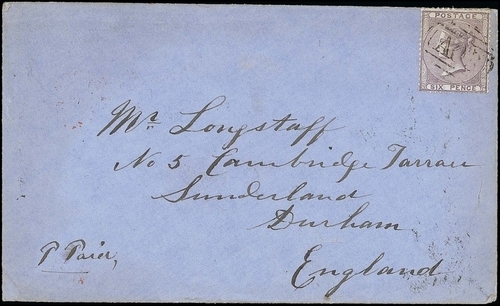 POSTAGE
SIX PENCE
Mr Longstaff
No 5 Cambridge Tarrace
Sunderland
Durham
England